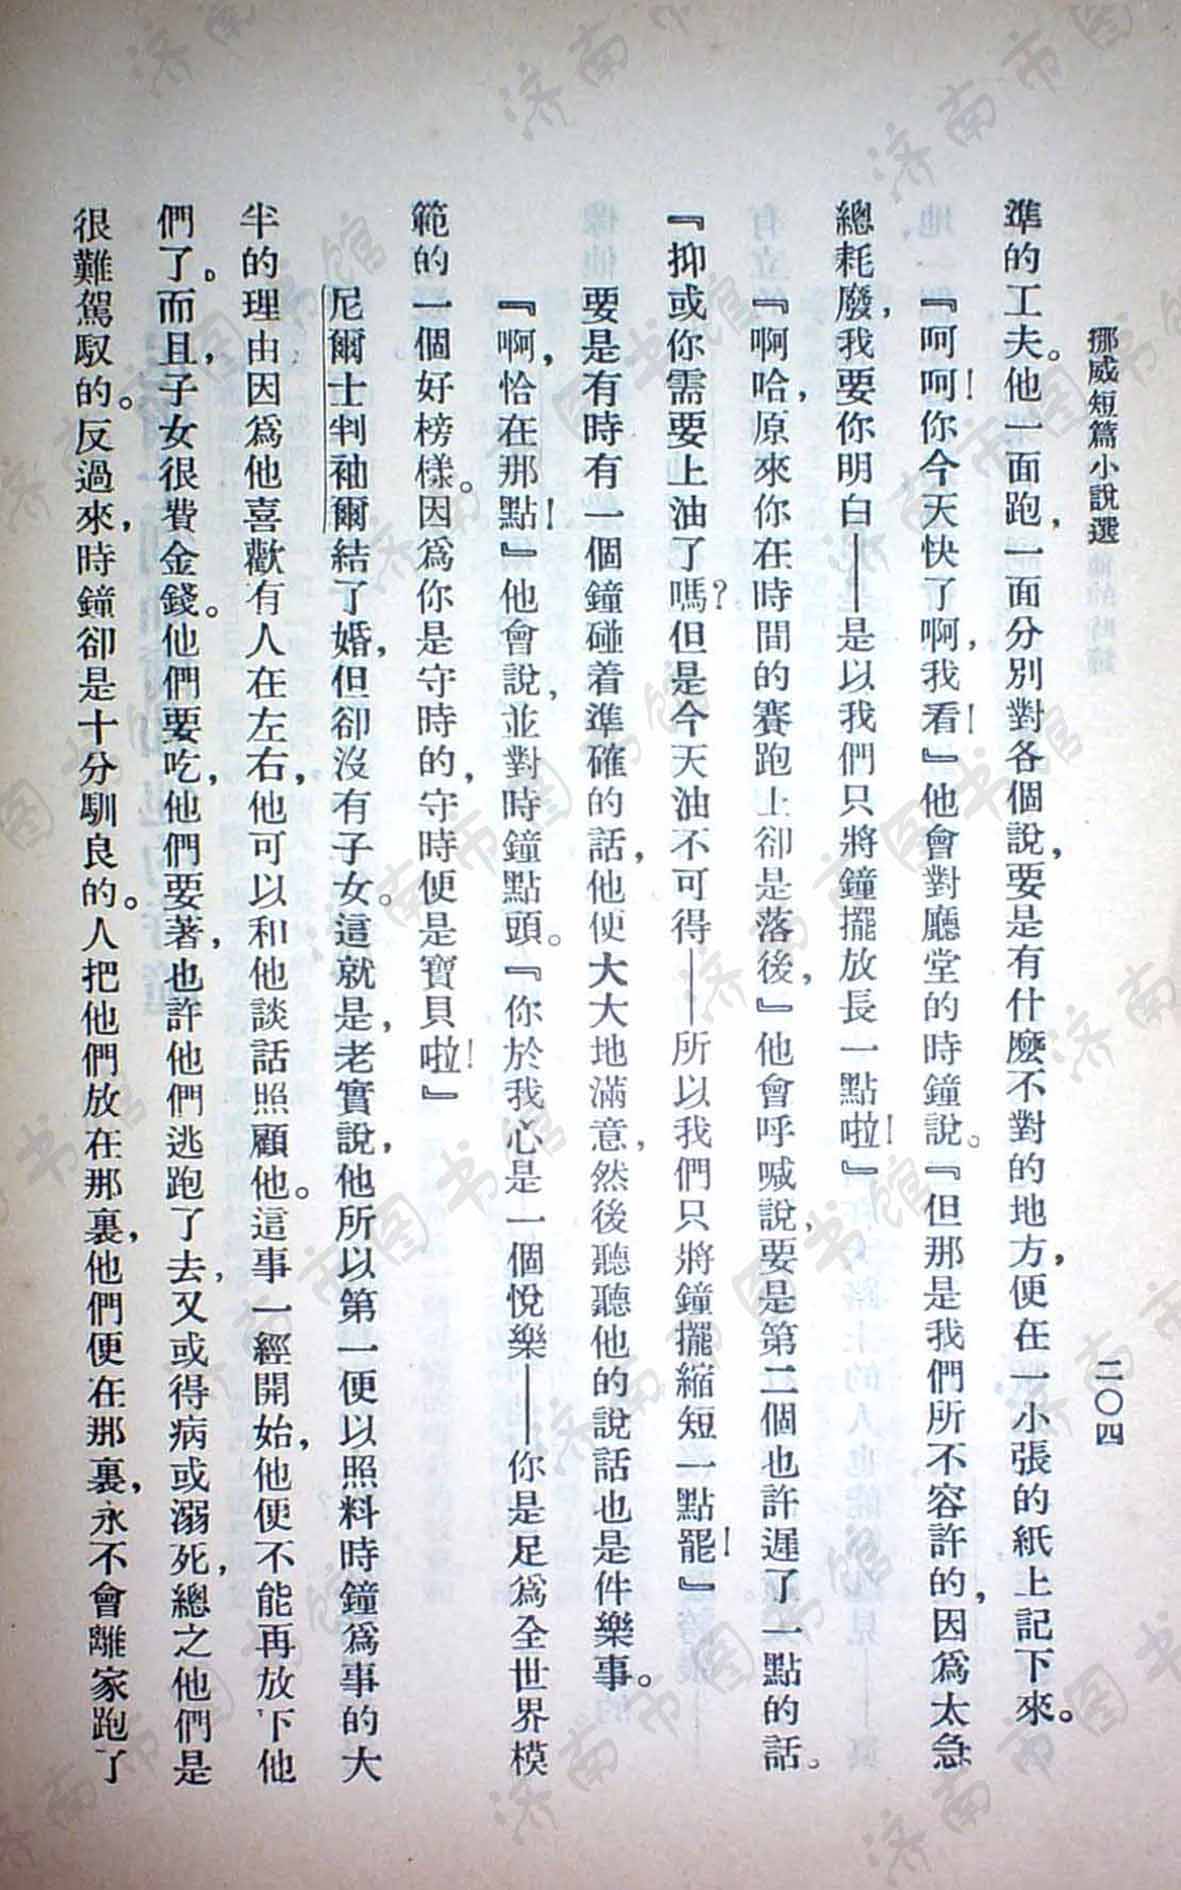 挪威短篇小說選
二〇四
準的工夫。他一面跑，一面分別對各個說，要是有什麼不對的地方，便在一小張的紙上記下來。
『呵呵！你今天快了啊，我看！』他會對廳堂的時鐘說。『但那是我們所不容許的，因爲太急
總耗廢，我要你明白——是以我們只將鐘擺放長一點啦！』
『啊哈，原來你在時間的賽跑上卻是落後，』他會呼喊說，要是第二個也許遲了一點的話。
『抑或你需要上油了嗎？但是今天油不可得——所以我們只將鐘擺縮短一點罷！』
要是有時有一個鐘碰着準確的話，他便大大地滿意，然後聽聽他的說話也是件樂事。
『啊，恰在那點！』他會說，並對時鐘點頭。『你於我心是一個悅樂——你是足爲全世界模
範的一個好榜樣。因爲你是守時的，守時便是寶貝啦！』
尼爾士判袖爾結了婚，但卻沒有子女。這就是，老實說，他所以第一便以照料時鐘爲事的大
半的理由因爲他喜歡有人在左右，他可以和他談話照顧他。這事一經開始，他便不能再放下他
們了。而且，子女很費金錢。他們要吃，他們要著，也許他們逃跑了去，又或得病或溺死，總之他們是
很難駕馭的。反過來，時鐘卻是十分馴良的。人把他們放在那裏，他們便在那裏，永不會離家跑了
济南市图书馆